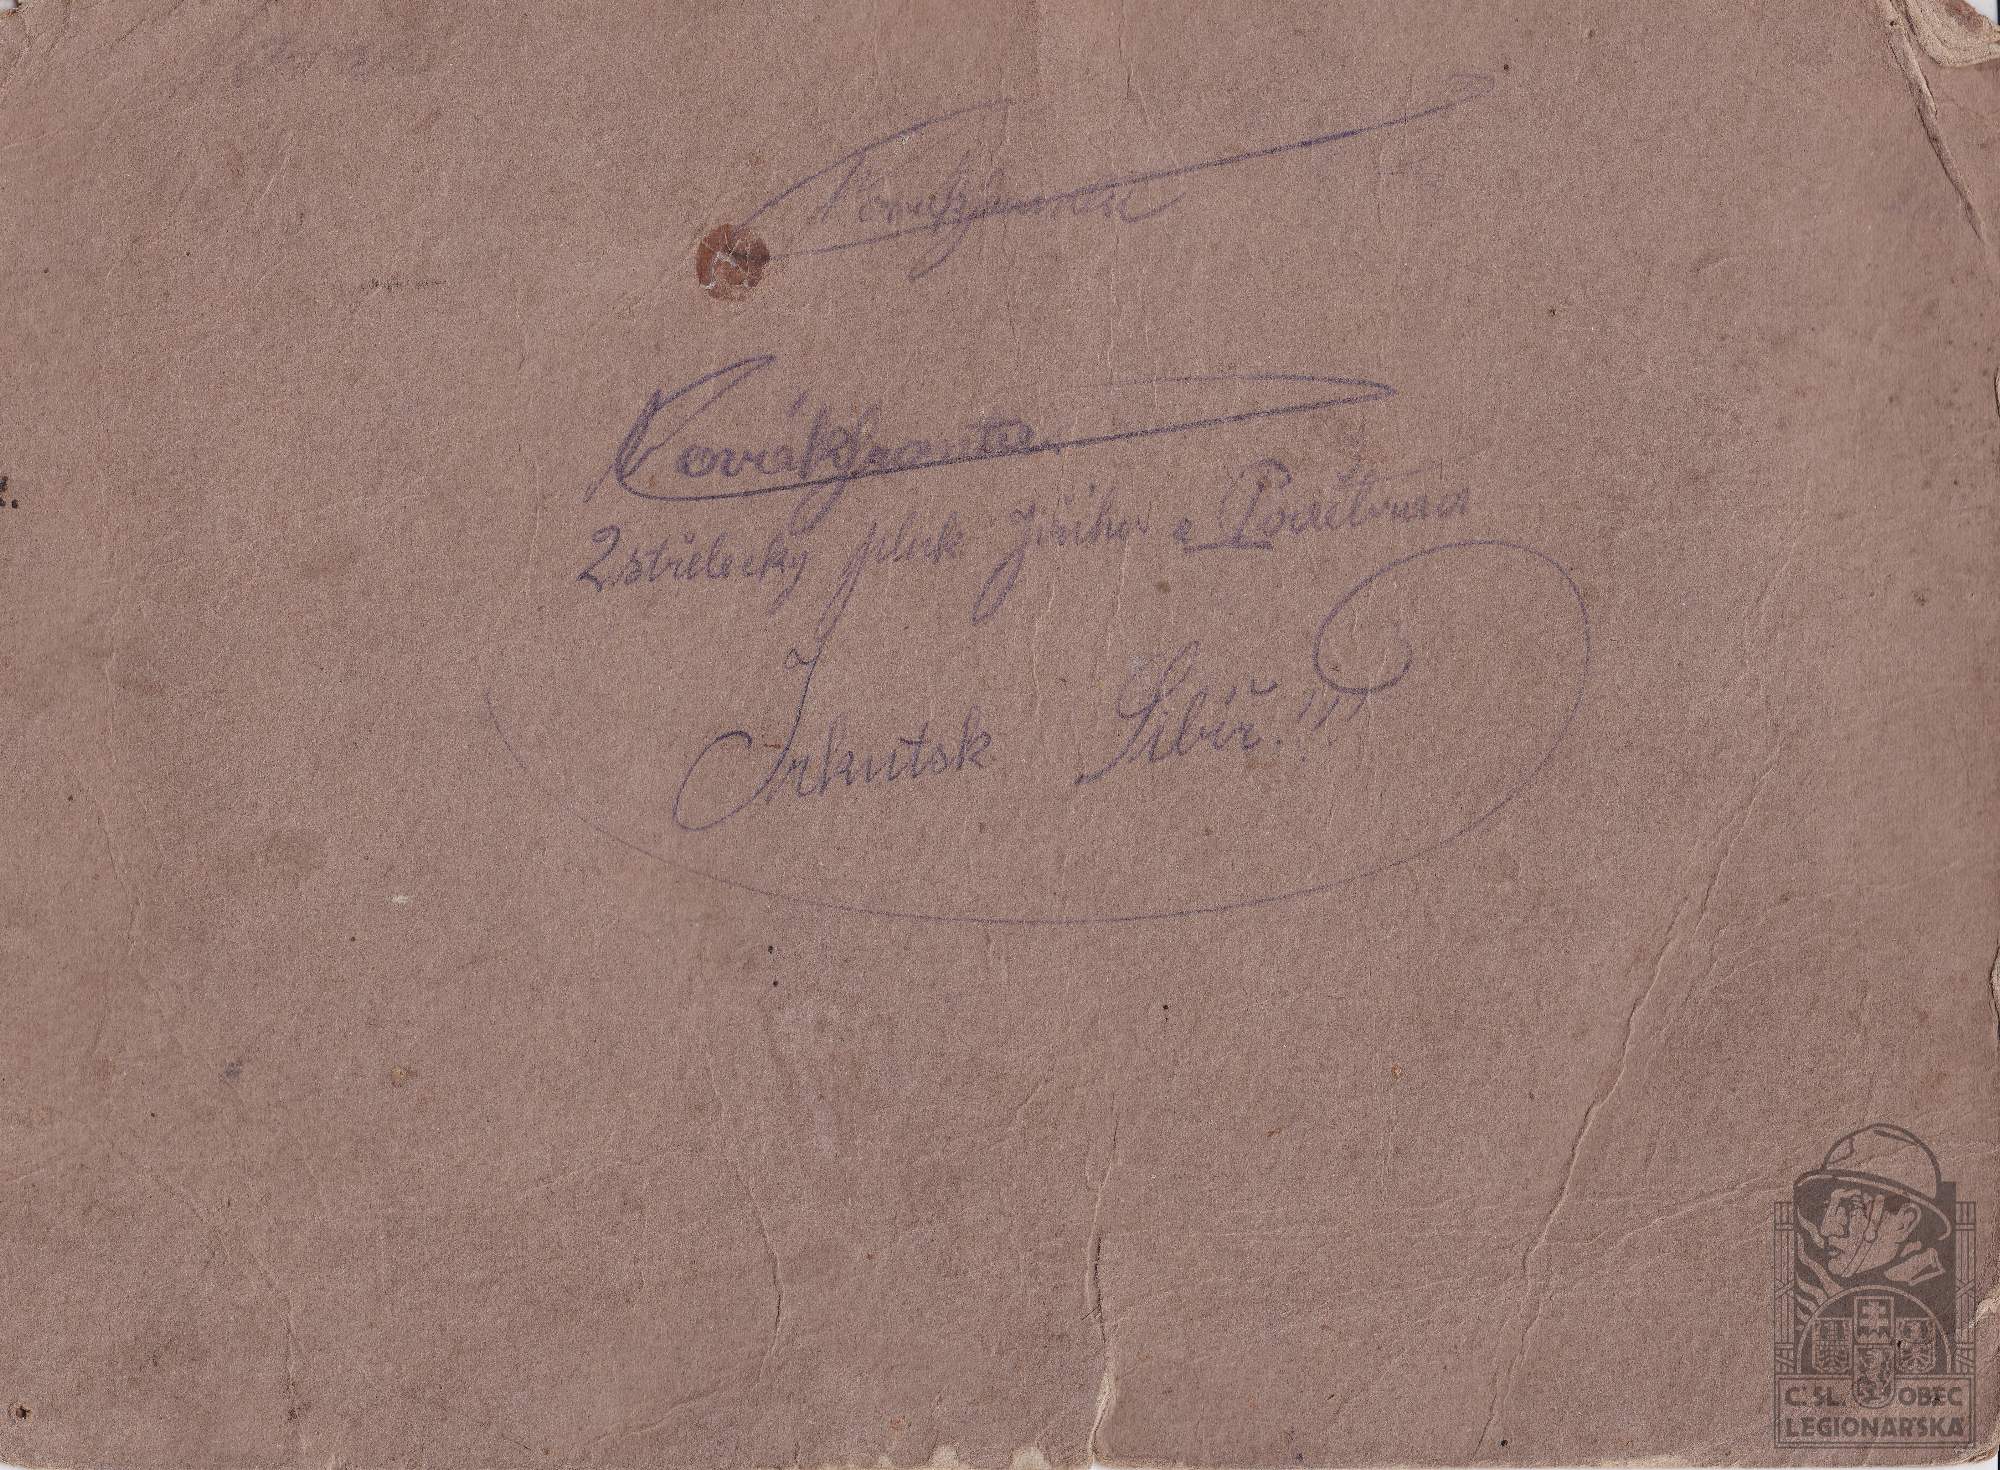 Novák Franta
Novák Franta
2 střelecky pluk Jiřiho z Poděbrad
Irkutsk Sibiř.!!!
Č. SL. OBEC
LEGIONÁŘSKÁ